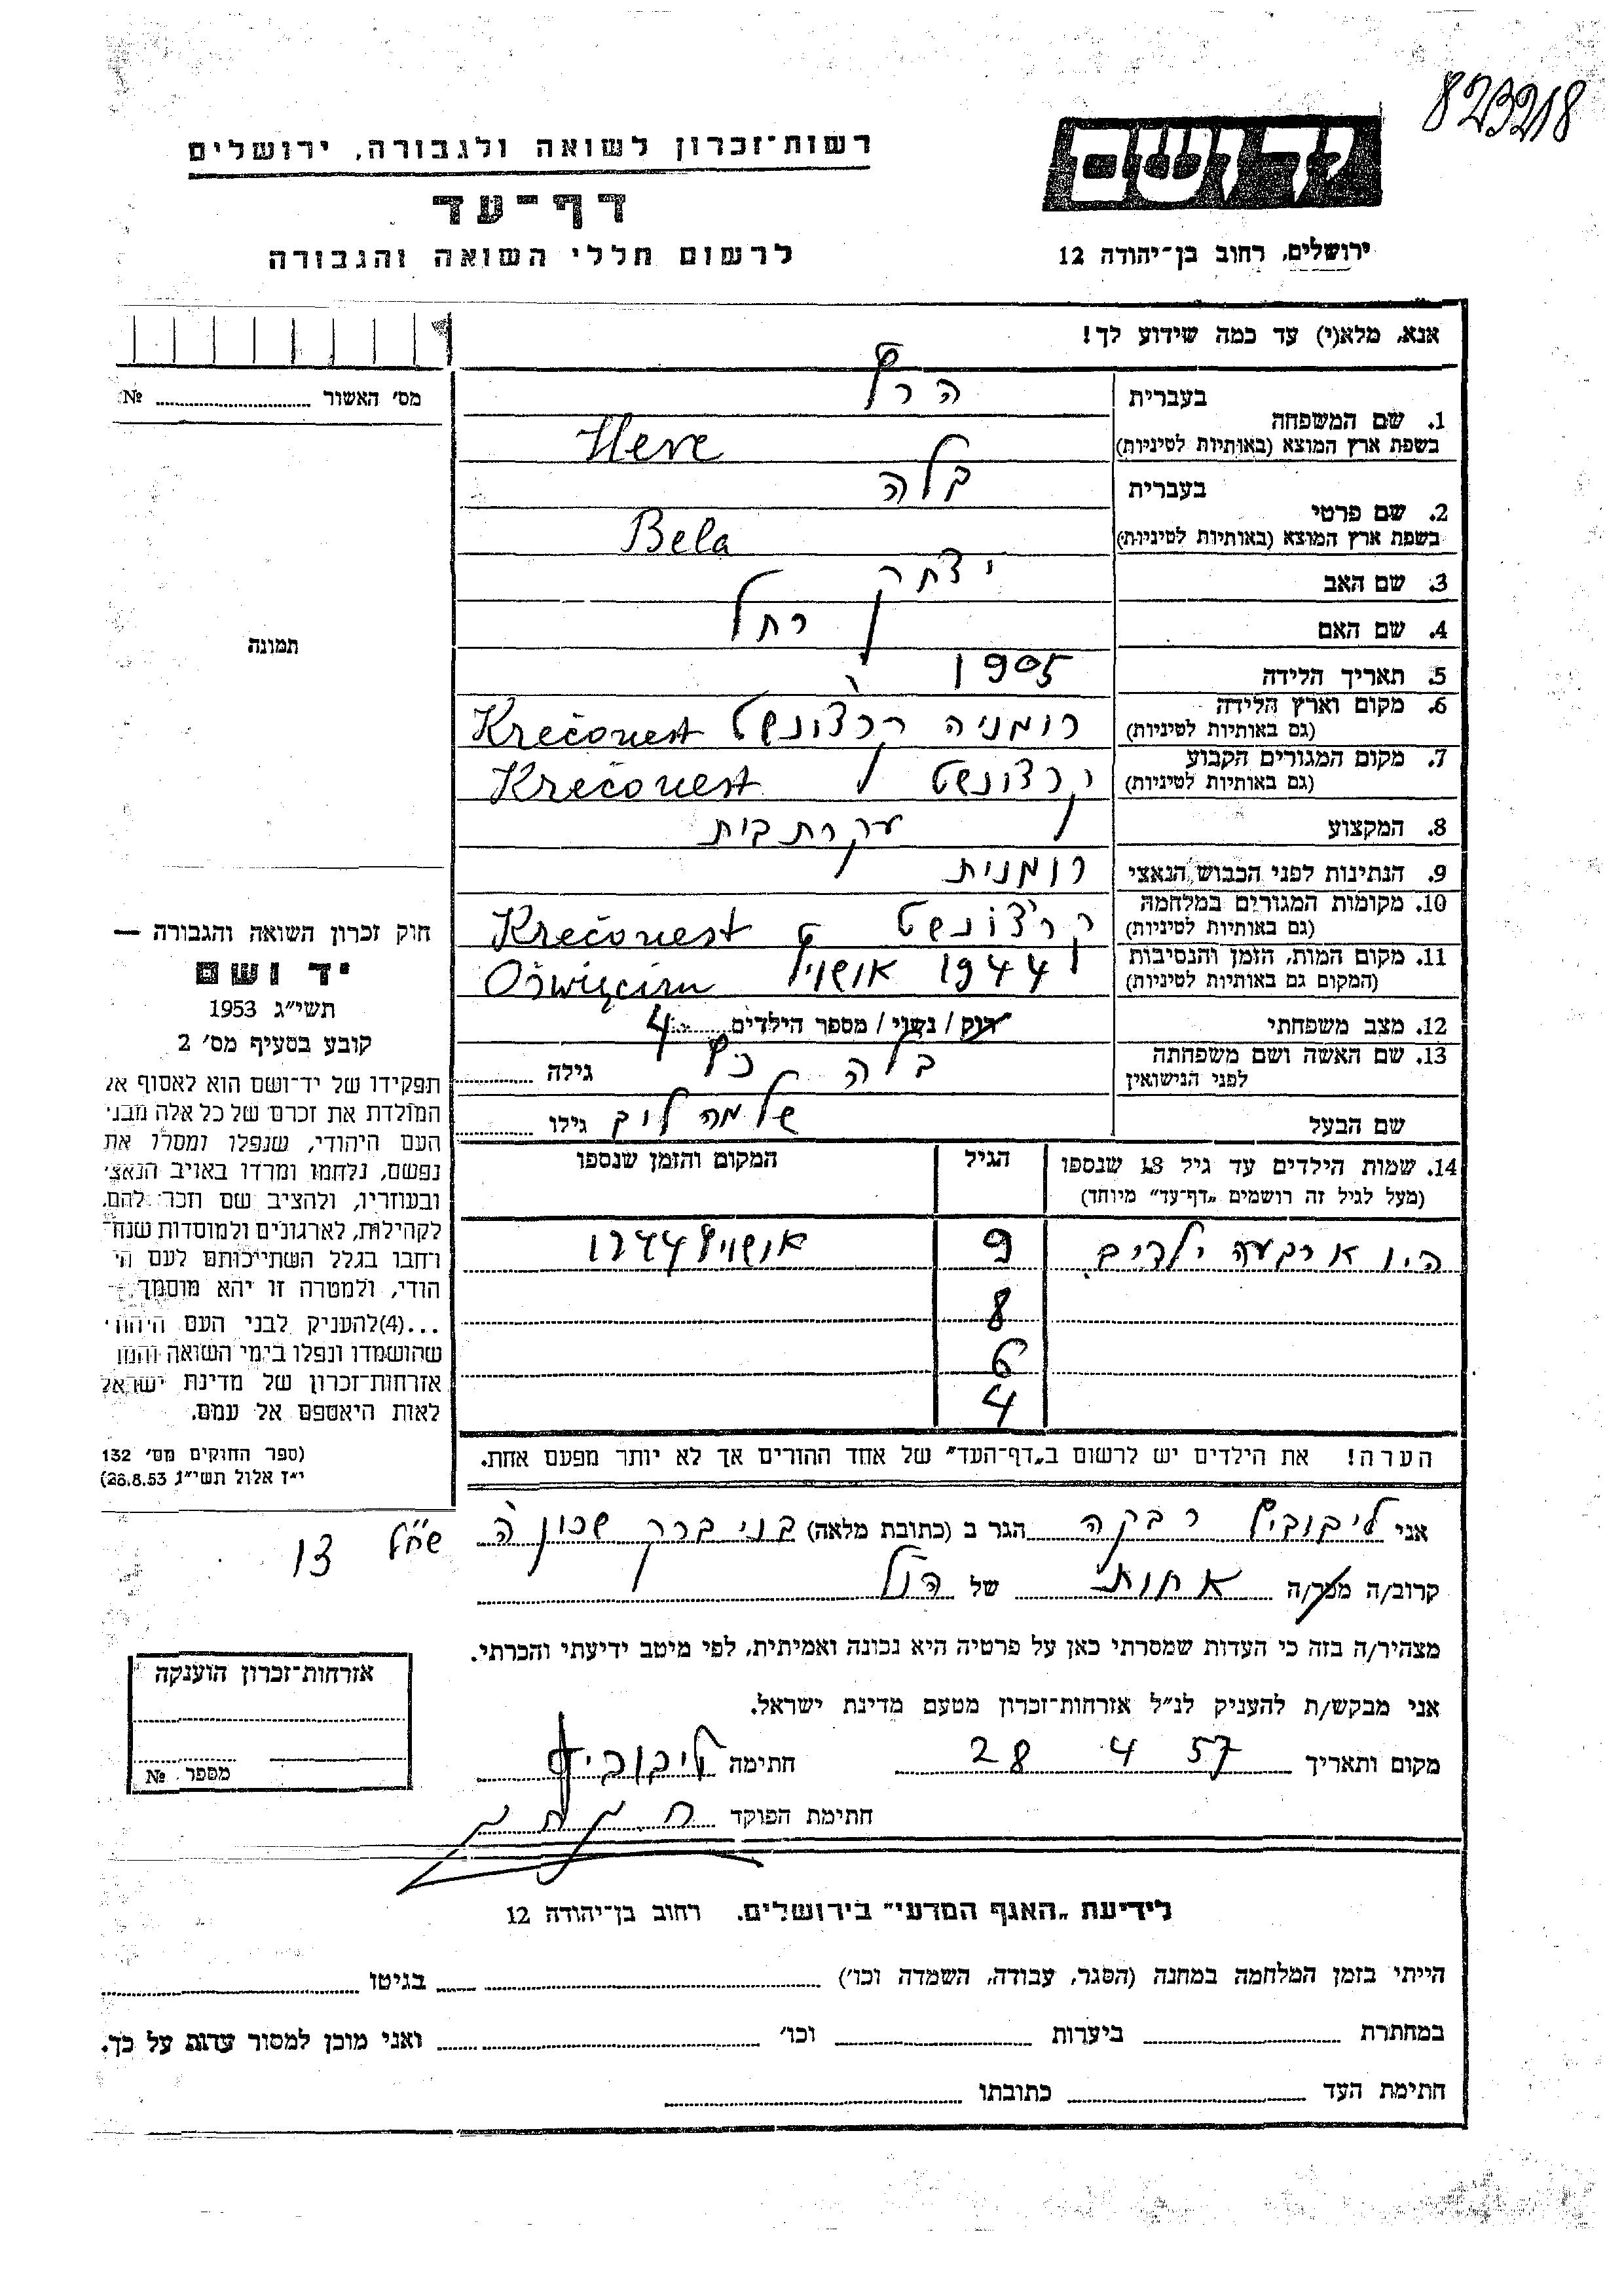 823218
יד ושם
רשות־זכרון לשואה ולגבורה, ירושלים
דף־עד
לרשום חללי השואה והגבורה
ירושלים, רחוב בן־יהודה 12
אנא, מלא(י) עד כמה שידוע לך!
מס׳ האשור № 
בעברית
1. שם המשפחה
בשפת ארץ המוצא (באותיות לטיניות)
2. שם פרטי בעברית בלה
בשפת ארץ המוצא (באותיות לטיניות) Bela
3. שם האב יצחק
4. שם האם רחל
5. תאריך הלידה 1905
6. מקום וארץ הלידה רומניה קרצונשט Krečonest
(גם באותיות לטיניות)
7. מקום המגורים הקבוע קרצונשט Krečonest
(גם באותיות לטיניות)
8. המקצוע עקרת בית
9. הנתינות לפני הכבוש הנאצי רומנית
10. מקומות המגורים במלחמה קרצונשט Krečonest
(גם באותיות לטיניות)
11. מקום המות, הזמן והנסיבות 1944 אושויץ Oświęcim
(המקום גם באותיות לטיניות)
12. מצב משפחתי רוק / נשוי / מספר הילדים 4
13. שם האשה ושם משפחתה בלה כץ גילה
לפני הנישואין
שם הבעל שלמה לוב גילו
14. שמות הילדים עד גיל 18 שנספו הגיל המקום והזמן שנספו
(מעל לגיל זה רושמים „דף־עד״ מיוחד)
היו ארבעה ילדים 9 אושויץ 1944
8
6
4
הערה! את הילדים יש לרשום ב„דף־העד״ של אחד ההורים אך לא יותר מפעם אחת.
תמונה
חוק זכרון השואה והגבורה —
יד ושם
תשי״ג 1953
קובע בסעיף מס׳ 2
תפקידו של יד־ושם הוא לאסוף אל
המולדת את זכרם של כל אלה מבני
העם היהודי, שנפלו ומסרו את
נפשם, נלחמו ומרדו באויב הנאצי
ובעוזריו, ולהציב שם וזכר להם,
לקהילות, לארגונים ולמוסדות שנח־
רחבו בגלל השתייכותם לעם הי־
הודי, ולמטרה זו יהא מוסמך —
...(4)להעניק לבני העם היהודי
שהושמדו ונפלו בימי השואה והמרי
אזרחות־זכרון של מדינת ישראל
לאות היאספם אל עמם.
(ספר החוקים מס׳ 132
י״ז אלול תשי״ג 28.8.53)
אני ליבוביץ רבקה הגר ב (כתובת מלאה) בני ברק שכון ה׳ 13
קרוב/ה מכר/ה אחות של הנ״ל
מצהיר/ה בזה כי העדות שמסרתי כאן על פרטיה היא נכונה ואמיתית, לפי מיטב ידיעתי והכרתי.
אני מבקש/ת להעניק לנ״ל אזרחות־זכרון מטעם מדינת ישראל.
מקום ותאריך 28 4 57 חתימה ליבוביץ
חתימת הפוקד
אזרחות־זכרון הוענקה
מספר №
לידיעת „האגף המדעי״ בירושלים, רחוב בן־יהודה 12
הייתי בזמן המלחמה במחנה (הסגר, עבודה, השמדה וכו׳) בגיטו
במחתרת ביערות וכו׳ ואני מוכן למסור עדות על כך.
חתימת העד כתובתו